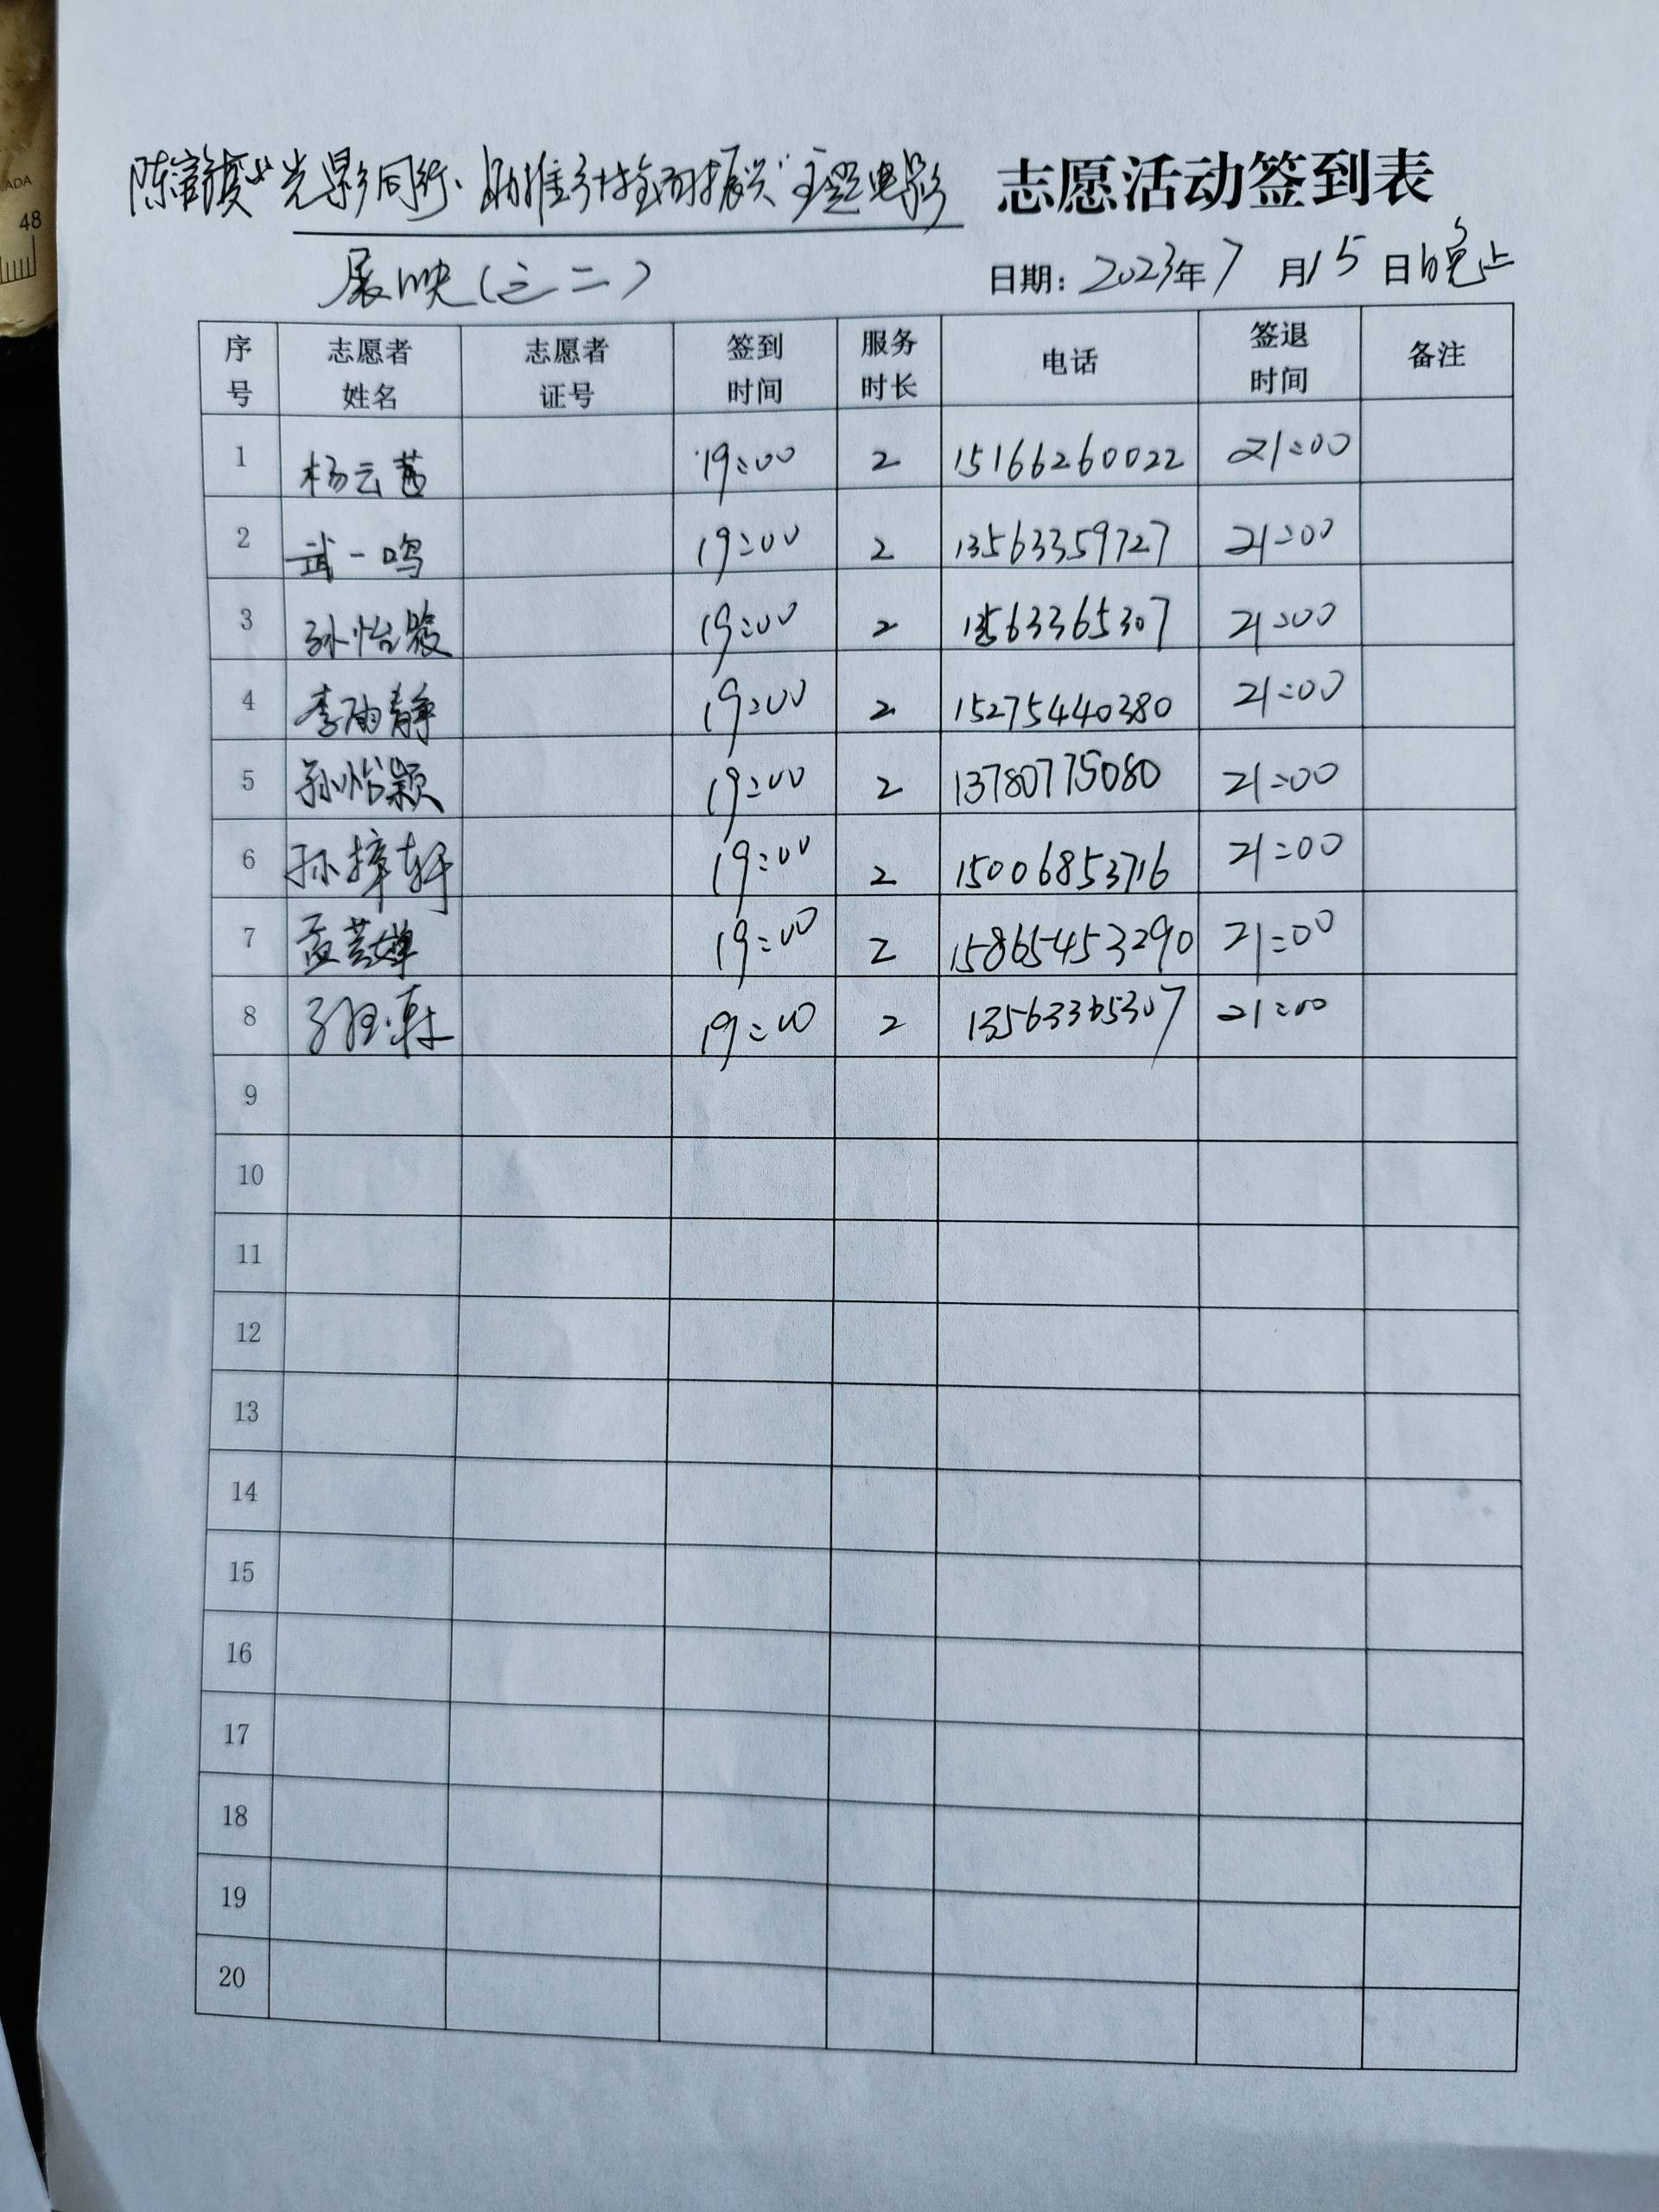 ADA
48
"光影同行·助推乡村全面振兴"主题电影 志愿活动签到表
展映(之二)
日期: 2023年7月15日晚上
序号 志愿者姓名 志愿者证号 签到时间 服务时长 电话 签退时间 备注
1 杨云茜 19:00 2 15166260022 21:00
2 武一鸣 19:00 2 13563359727 21:00
3 孙怡 19:00 2 13563365307 21:00
4 李雨静 19:00 2 15275440380 21:00
5 孙怡颖 19:00 2 13780775080 21:00
6 孙樟轩 19:00 2 15006853716 21:00
7 孟 19:00 2 15865453290 21:00
8 19:00 2 13563365307 21:00
9
10
11
12
13
14
15
16
17
18
19
20